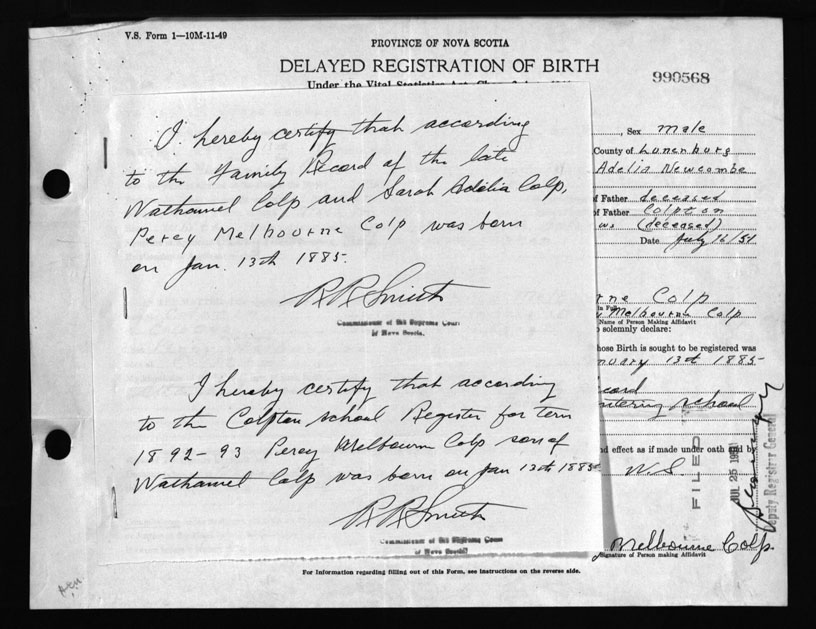 V.S. Form 1—10M-11-49
PROVINCE OF NOVA SCOTIA
DELAYED REGISTRATION OF BIRTH
990568
Under the Vital Statistics Act,
I hereby certify that according
to the Family Record of the late
Nathaniel Colp and Sarah Adelia Colp,
Percy Melbourne Colp was born
on Jan. 13th 1885.
R R Smith
Commissioner of the Supreme Court
of Nova Scotia.
I hereby certify that according
to the Colpton School Register for term
1892-93 Percy Melbourn Colp son of
Nathaniel Colp was born on Jan 13th 1885
R R Smith
Commissioner of the Supreme Court
of Nova Scotia
, Sex male
County of Lunenburg
Adelia Newcombe
of Father deceased
of Father Colpton
(deceased)
Date July 16/51
rne Colp
in Full
y Melbourne Colp
Name of Person Making Affidavit
o solemnly declare:
hose Birth is sought to be registered was
nuary 13th 1885
cord
ntering school
nd effect as if made under oath and by
N.S.
FILED
JUL 25 1951
Deputy Registrar General
Melbourne Colp
Signature of Person making Affidavit
For Information regarding filling out of this Form, see instructions on the reverse side.